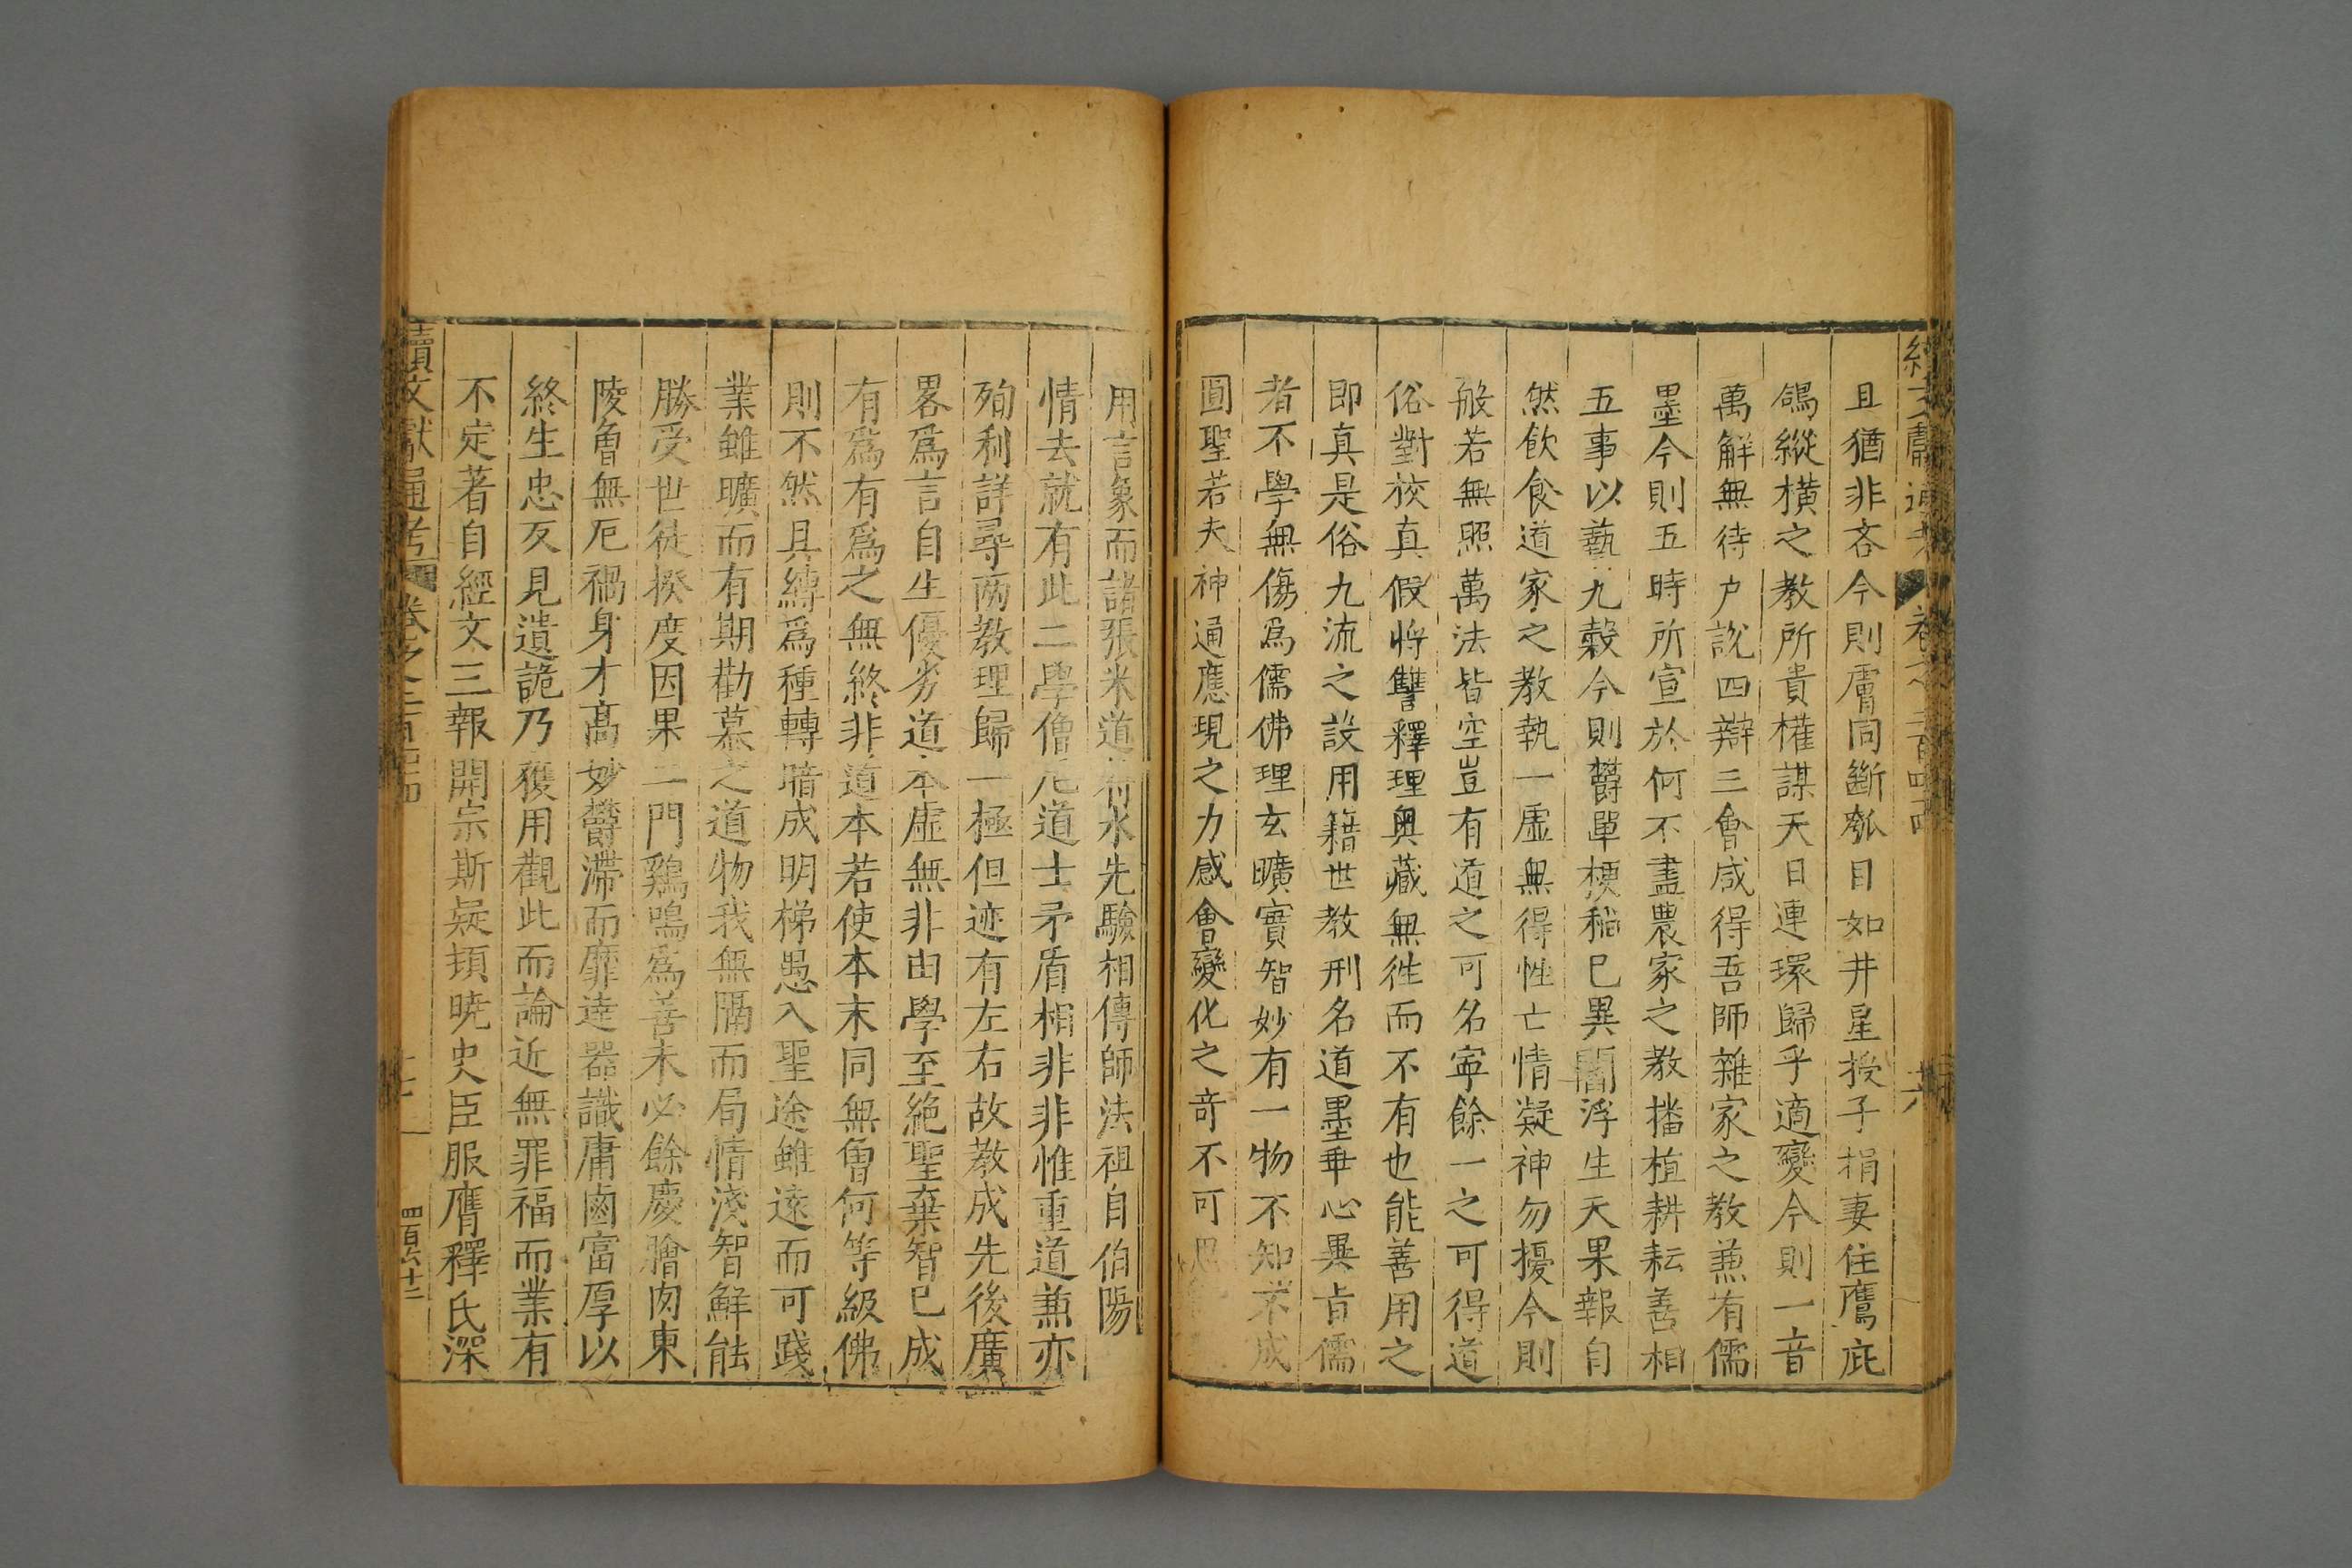 且猶非吝今則膚同斷瓠目如井星授子捐妻在鷹庇
鴿縱橫之教所貴權謀天日連環歸乎適變今則一音
萬解無待户說四辯三會咸得吾師雜家之教兼有儒
墨今則五時所宣於何不盡農家之教播植耕耘善相
五事以藝九穀今則欝單粳稻已異閻浮生天果報自
然飲食道家之教執一虛無得性亡情凝神勿擾今則
般若無照萬法皆空豈有道之可名寧餘一之可得道
俗對校真假將讐釋理奥藏無徃而不有也能善用之
即真是俗九流之設用籍世教刑名道墨乖心異旨儒
者不學無傷為儒佛理玄曠實智妙有一物不知不成
圓聖若夫神通應現之力感會變化之奇不可思
用言象而諸張米道符水先驗相傳師法祖自伯陽
情去就有此二學僧尼道士矛盾相非非惟重道兼亦
殉利詳尋两教理歸一極但迹有左右故教成先後廣
畧為言自生優劣道本虛無非由學至絶聖棄智已成
有為有為之無終非道本若使本末同無曾何等級佛
則不然具縛為種轉暗成明梯愚入聖途雖遠而可踐
業雖曠而有期勸慕之道物我無隔而局情淺智鮮能
勝受世徒揆度因果二門鷄鳴為善未必餘慶膾肉東
陵曾無厄禍身才髙妙欝滯而靡逹器識庸鹵富厚以
終生忠反見遺詭乃獲用觀此而論近無罪福而業有
不定著自經文三報開宗斯疑頓暁史臣服膺釋氏深
續文獻通考 卷之二百四四
四百六十二